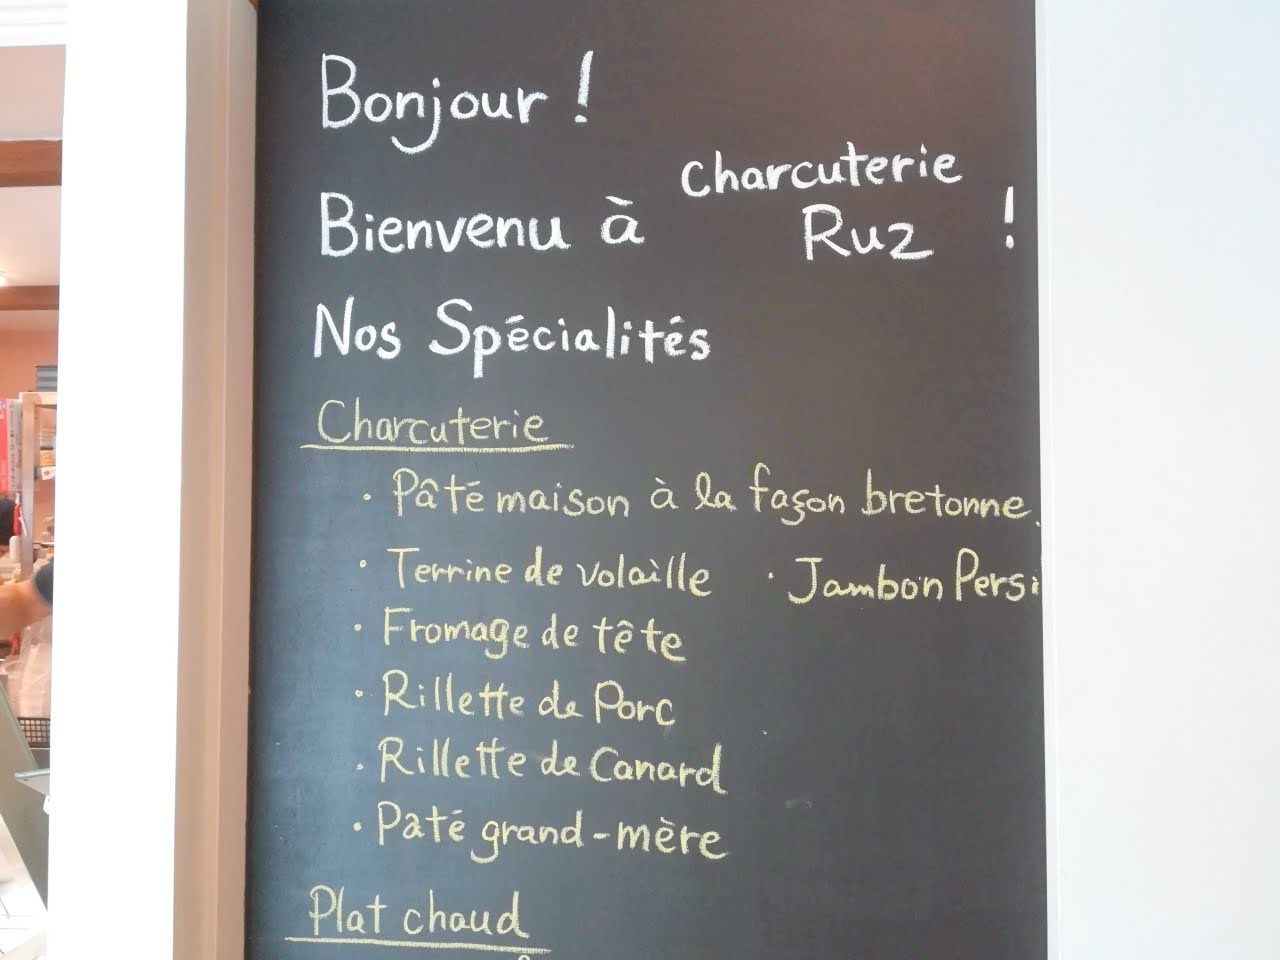 Bonjour !
Bienvenu à Charcuterie Ruz !
Nos Spécialités
Charcuterie
· Pâté maison à la façon bretonne.
· Terrine de volaille · Jambon Persi
· Fromage de tête
· Rillette de Porc
· Rillette de Canard
· Pâté grand-mère
Plat chaud